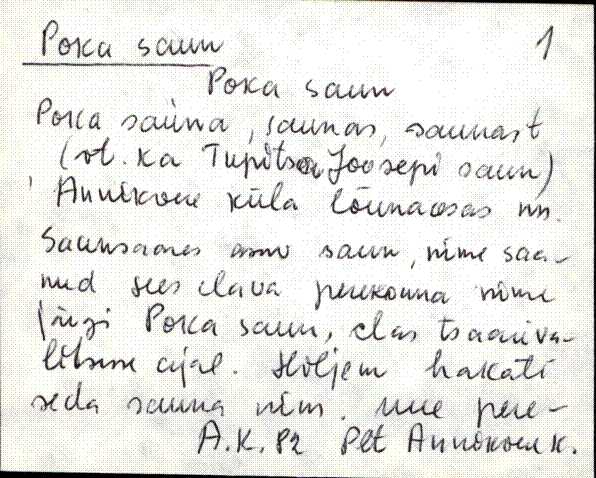 Poka saun 1
Poka saun
Poka sauna, saunas, saunast
(vt. ka Tupitsa Joosepi saun)
Annikvere küla lõunaosas nn.
Saunsaares asuv saun, nime saa-
nud sees elava perekonna nime
järgi Poka saun, elas tsaariva-
litsuse ajal. Hiljem hakati
seda sauna nim. uue pere-
A.K. 82 Plt Annikvere k.